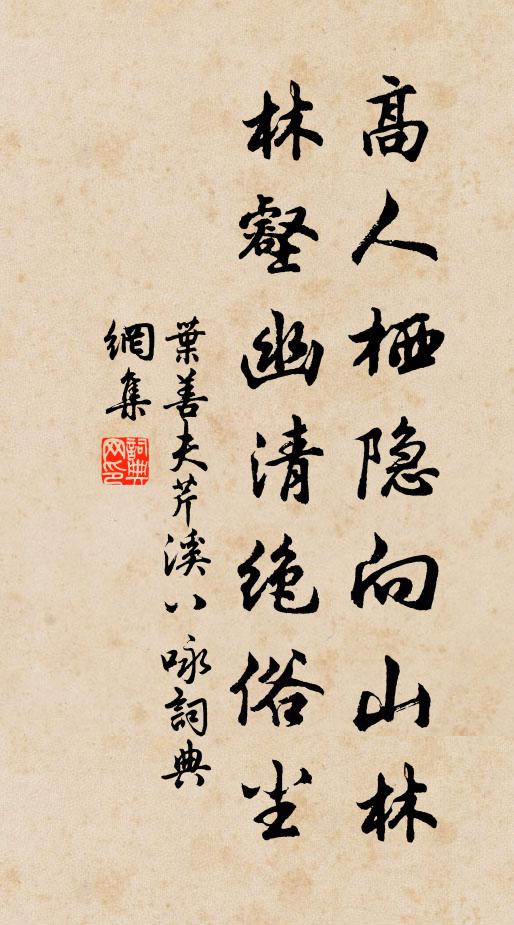 高人栖隐向山林
林壑幽清绝俗尘
葉善夫芹溪八咏詞典
網集
詞典
网印